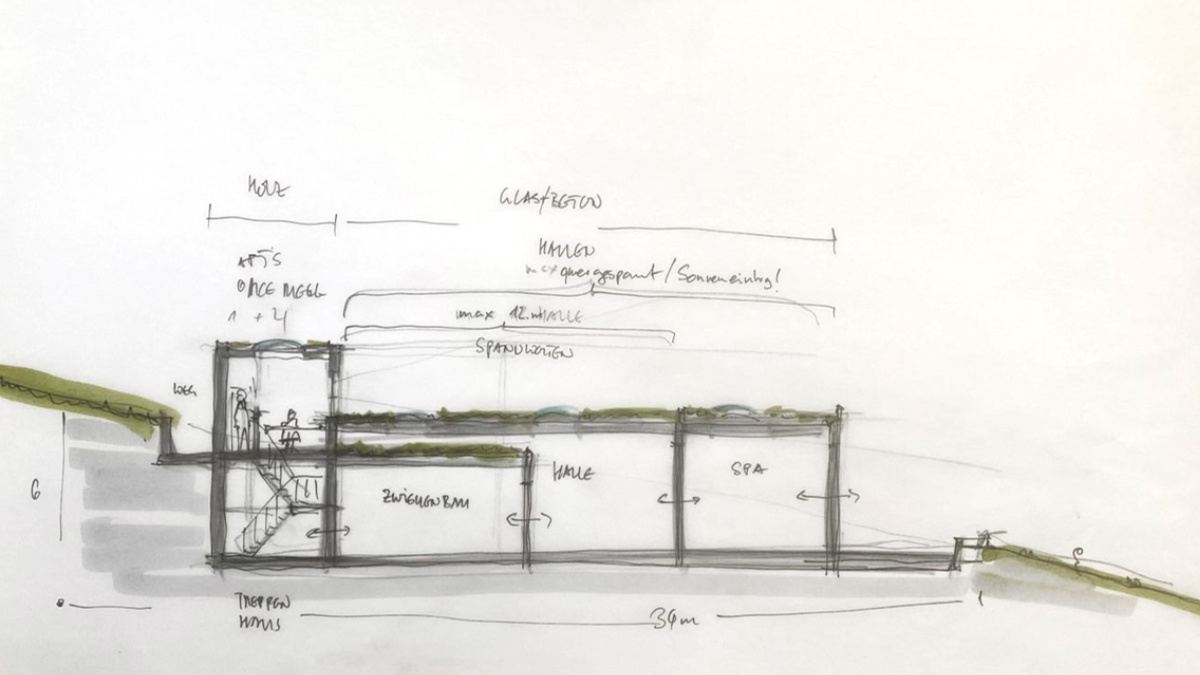 HOLZ
GLAS/BETON
APT'S
HALLEN
max quergespannt / Sonneneintrag!
1 + 2
max 12 m HALLE
SPANNWEITEN
WEG
HALLE
SPA
6
ZWISCHENBAU
TREPPEN
HAUS
34m